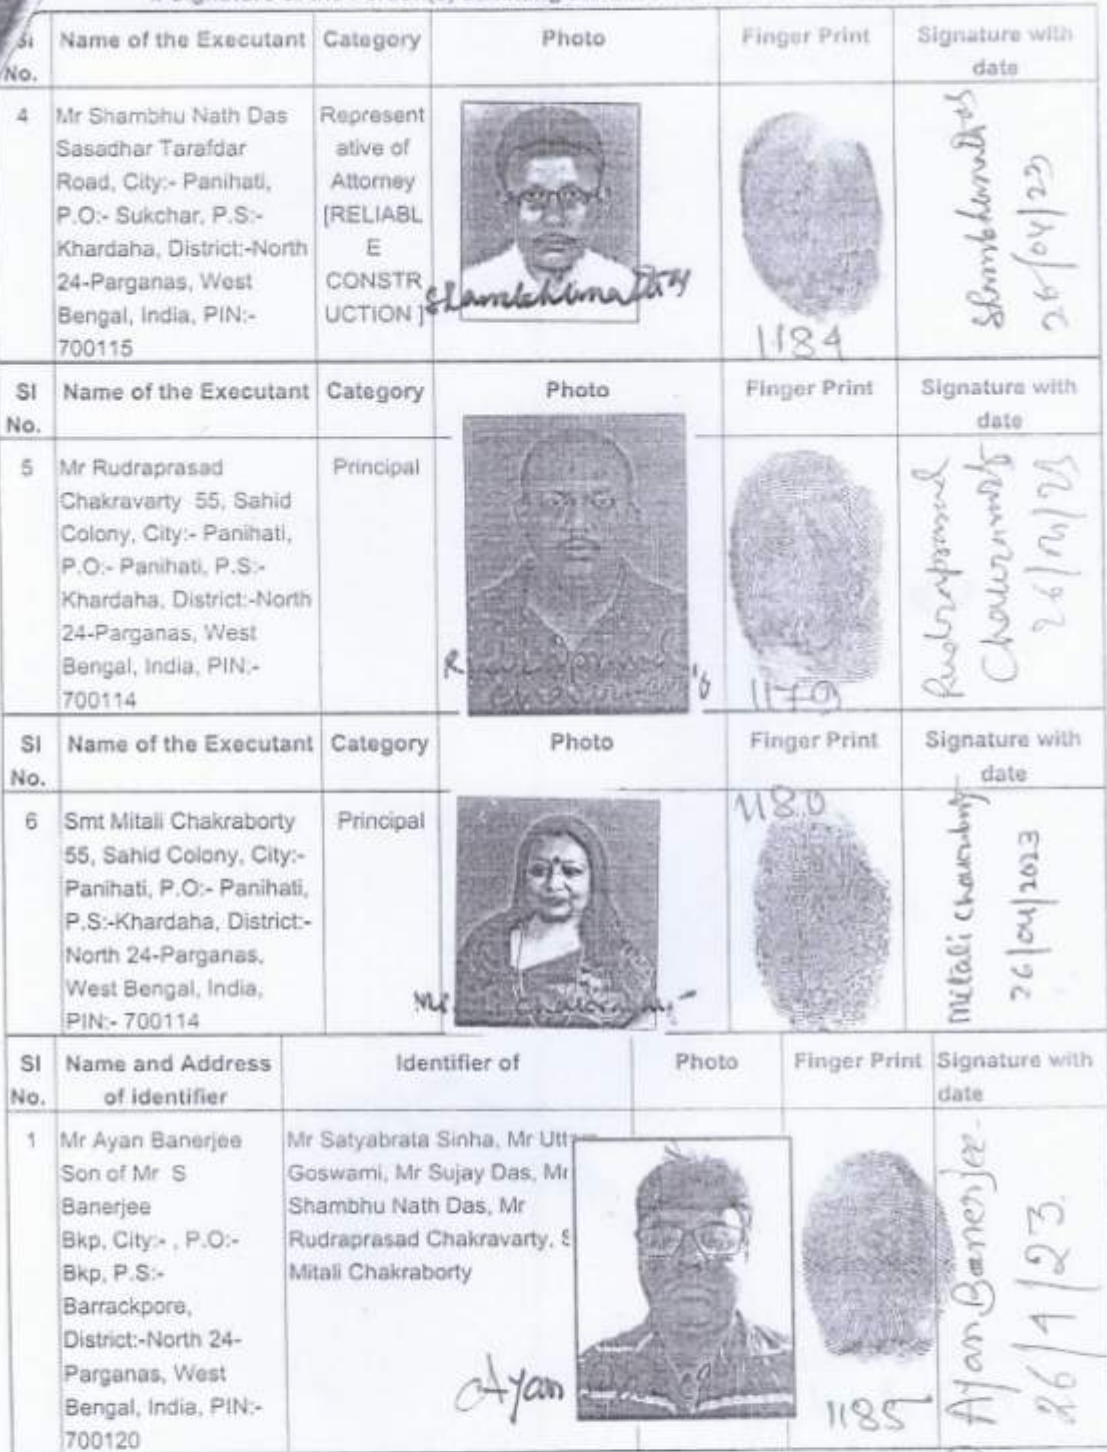 Sl No. Name of the Executant Category Photo Finger Print Signature with date
4 Mr Shambhu Nath Das Sasadhar Tarafdar Road, City:- Panihati, P.O:- Sukchar, P.S:- Khardaha, District:-North 24-Parganas, West Bengal, India, PIN:- 700115
Represent
ative of
Attorney
[RELIABL
E
CONSTR
UCTION ]
1184
26/04/23
Sl No. Name of the Executant Category Photo Finger Print Signature with date
5 Mr Rudraprasad
Chakravarty 55, Sahid
Colony, City:- Panihati,
P.O:- Panihati, P.S:-
Khardaha, District:-North
24-Parganas, West
Bengal, India, PIN:-
700114
Principal
1179
26/04/23
Sl No. Name of the Executant Category Photo Finger Print Signature with date
6 Smt Mitali Chakraborty
55, Sahid Colony, City:-
Panihati, P.O:- Panihati,
P.S:-Khardaha, District:-
North 24-Parganas,
West Bengal, India,
PIN:- 700114
Principal
1180
Mitali
26/04/2023
Sl No. Name and Address of identifier Identifier of Photo Finger Print Signature with date
1 Mr Ayan Banerjee
Son of Mr S
Banerjee
Bkp, City:- , P.O:-
Bkp, P.S:-
Barrackpore,
District:-North 24-
Parganas, West
Bengal, India, PIN:-
700120
Mr Satyabrata Sinha, Mr
Goswami, Mr Sujay Das, Mr
Shambhu Nath Das, Mr
Rudraprasad Chakravarty,
Mitali Chakraborty
Ayan
1185
Ayan Banerjee
26/4/23